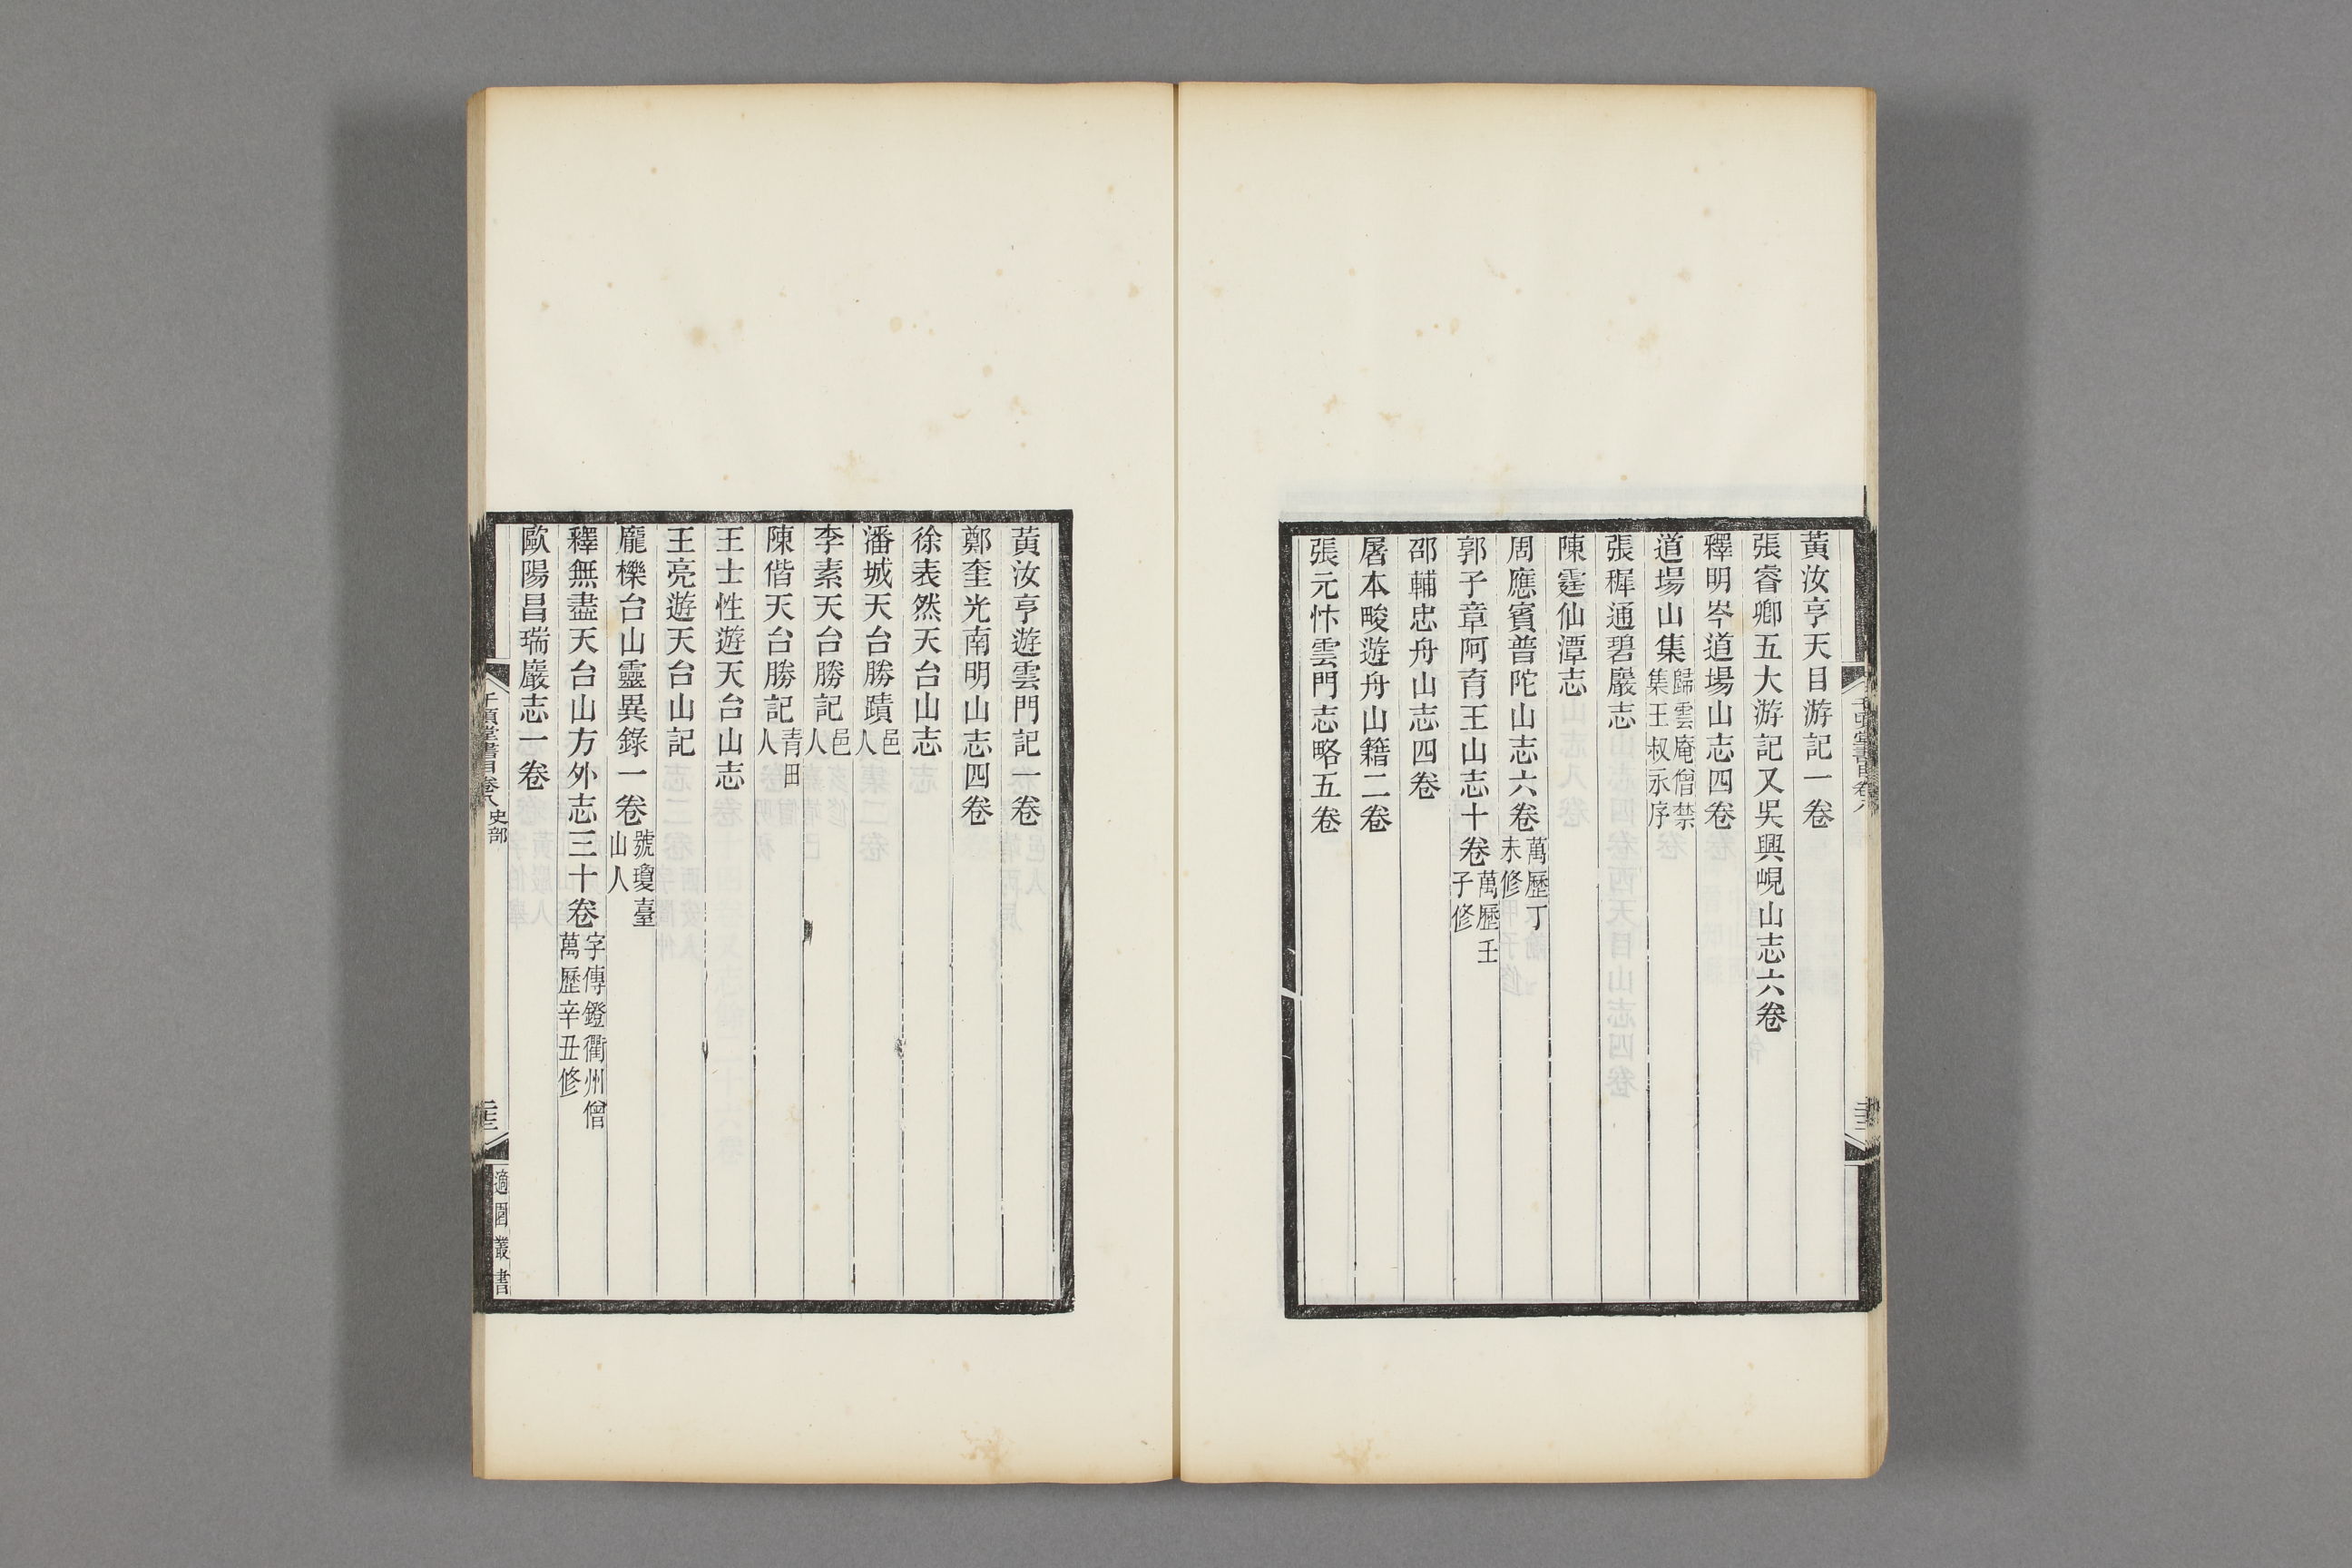 黃汝亨天目游記一卷
張睿卿五大游記又吳興峴山志六卷
釋明岑道場山志四卷
道場山集歸雲庵僧禁集王叔承序
張穉通碧巖志
陳霆仙潭志
周應賓普陀山志六卷萬歷丁未修
郭子章阿育王山志十卷萬歷壬子修
邵輔忠舟山志四卷
屠本畯遊舟山籍二卷
張元忭雲門志略五卷
黃汝亨遊雲門記一卷
鄭奎光南明山志四卷
徐表然天台山志
潘城天台勝蹟邑人
李素天台勝記邑人
陳偕天台勝記青田人
王士性遊天台山志
王亮遊天台山記
龐櫟台山靈異錄一卷號瓊臺山人
釋無盡天台山方外志三十卷字傳鐙衢州僧萬歷辛丑修
歐陽昌瑞巖志一卷
千頃堂書目卷八 史部
適園叢書